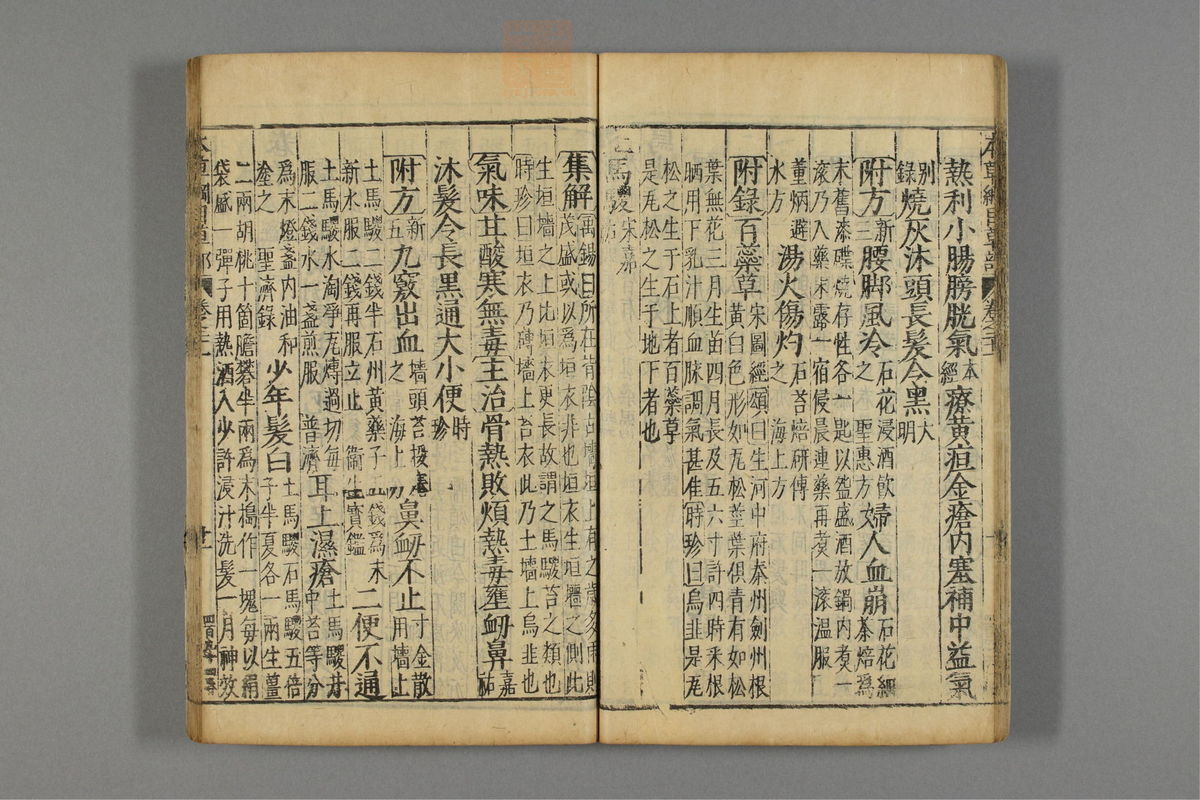 熱利小腸膀胱氣本經療黃疸金瘡內塞補中益氣
別錄燒灰沐頭長髮令黑大明
附方新三腰脚風冷石花浸酒飲之聖惠方婦人血崩石花細茶焙爲
末舊漆碟燒存性各一匙以盌盛酒放鍋內煮一
滚乃入藥末露一宿侵晨連藥再煮一滚温服
董炳避水方湯火傷灼石苔焙研傅之海上方
附錄百蘂草宋圖經頌曰生河中府秦州劍州根
黃白色形如瓦松莖葉俱青有如松
葉無花三月生苗四月長及五六寸許四時采根
晒用下乳汁順血脉調氣甚佳時珍曰烏韭是瓦
松之生于石上者百蘂草
是瓦松之生于地下者也
土馬騣宋嘉
集解禹錫曰所在背陰古墻垣上有之歲多雨則
茂盛或以爲垣衣非也垣衣生垣墻之側此
生垣墻之上比垣衣更長故謂之馬騣苔之類也
時珍曰垣衣乃磚墻上苔衣此乃土墻上烏韭也
氣味甘酸寒無毒主治骨熱敗煩熱毒壅衂鼻嘉祐
沐髮令長黑通大小便時珍
附方新五九竅出血墻頭苔挼塞之海上方鼻衂不止寸金散用墻上
土馬騣二錢半石州黃藥子五錢爲末
新水服二錢再服立止衛生寶鑑二便不通
土馬騣水淘淨瓦煿過切每
服一錢水一盞煎服普濟耳上濕瘡土馬騣井中苔等分
爲末燈盞內油和
塗之聖濟錄少年髮白土馬騣石馬騣五倍子半夏各一兩生薑
二兩胡桃十箇膽礬半兩爲末搗作一塊每以絹
袋盛一彈子用熱酒入少許浸汁洗髮一月神效
本草綱目草部 卷之二十一